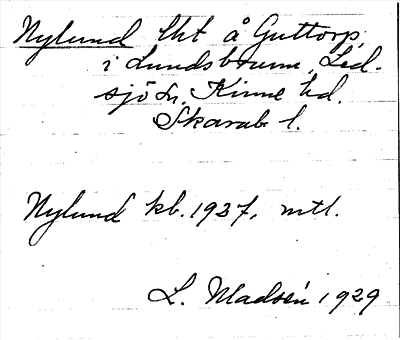 Nylund lht å Guttorp
i Lundsbrunn, Led-
sjö sn. Kinne hd.
Skarab. l.
Nylund kb. 1937, mtl.
L. Madsén 1929